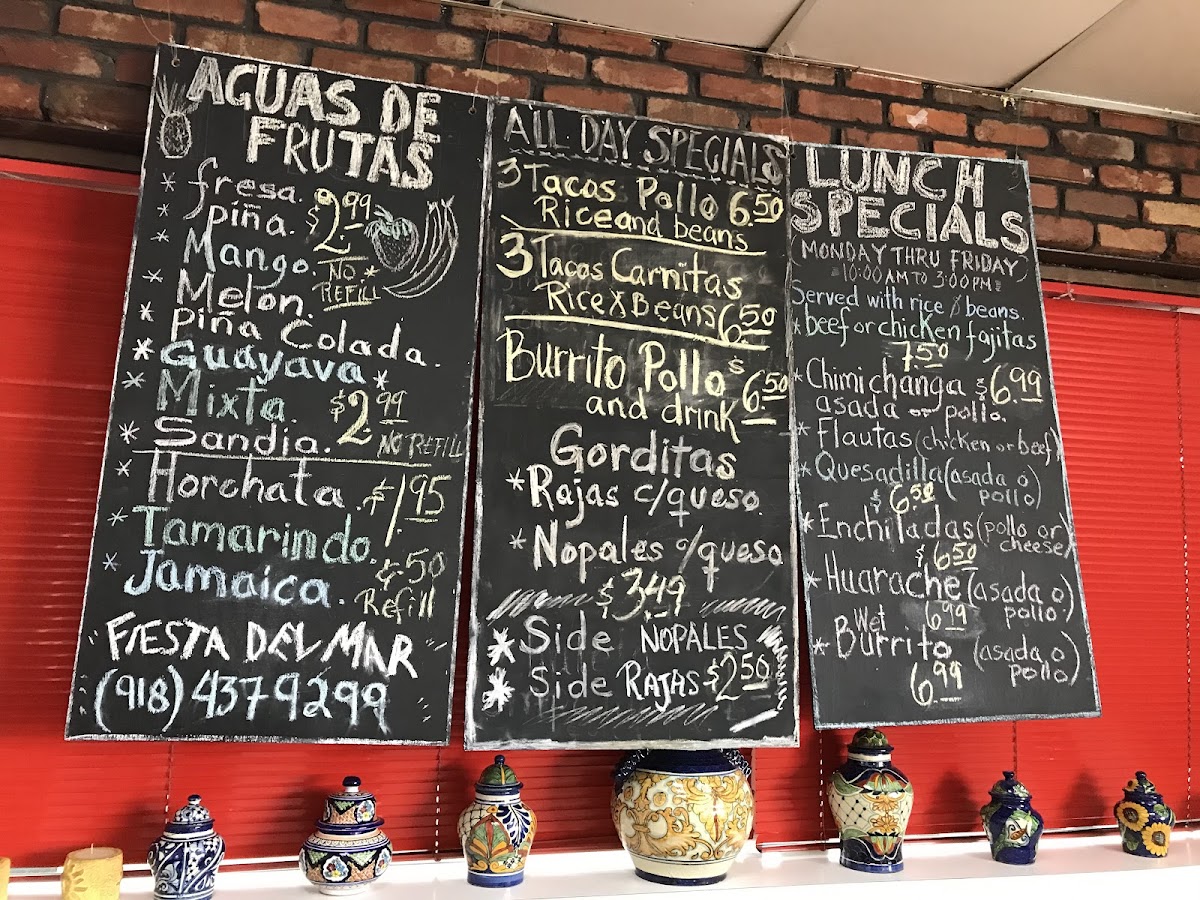 AGUAS DE
FRUTAS
* fresa.
* piña. $2.99
* Mango. NO *
REFILL
* Melon.
* piña Colada.
* Guayava *
* Mixta. $2.99
* Sandia. NO REFILL
* Horchata. $1.95
* Tamarindo.
* Jamaica. ¢.50
Refill
FIESTA DEL MAR
(918) 437 9299
ALL DAY SPECIALS
3 Tacos Pollo 6.50
Rice and beans
3 Tacos Carnitas
Rice & Beans 6.50
Burrito Pollo $6.50
and drink
Gorditas
* Rajas c/queso.
* Nopales c/queso
$3.49
* Side NOPALES
* Side RAJAS $2.50
LUNCH
SPECIALS
(MONDAY THRU FRIDAY)
10:00 AM TO 3:00 PM
Served with rice & beans.
* beef or chicken fajitas
7.50
* Chimichanga $6.99
asada or pollo.
* Flautas (chicken or beef)
* Quesadilla (asada o
$6.50 pollo)
* Enchiladas (pollo or
cheese)
$6.50
* Huarache (asada o
6.99 pollo)
Wet
* Burrito (asada o
pollo)
6.99